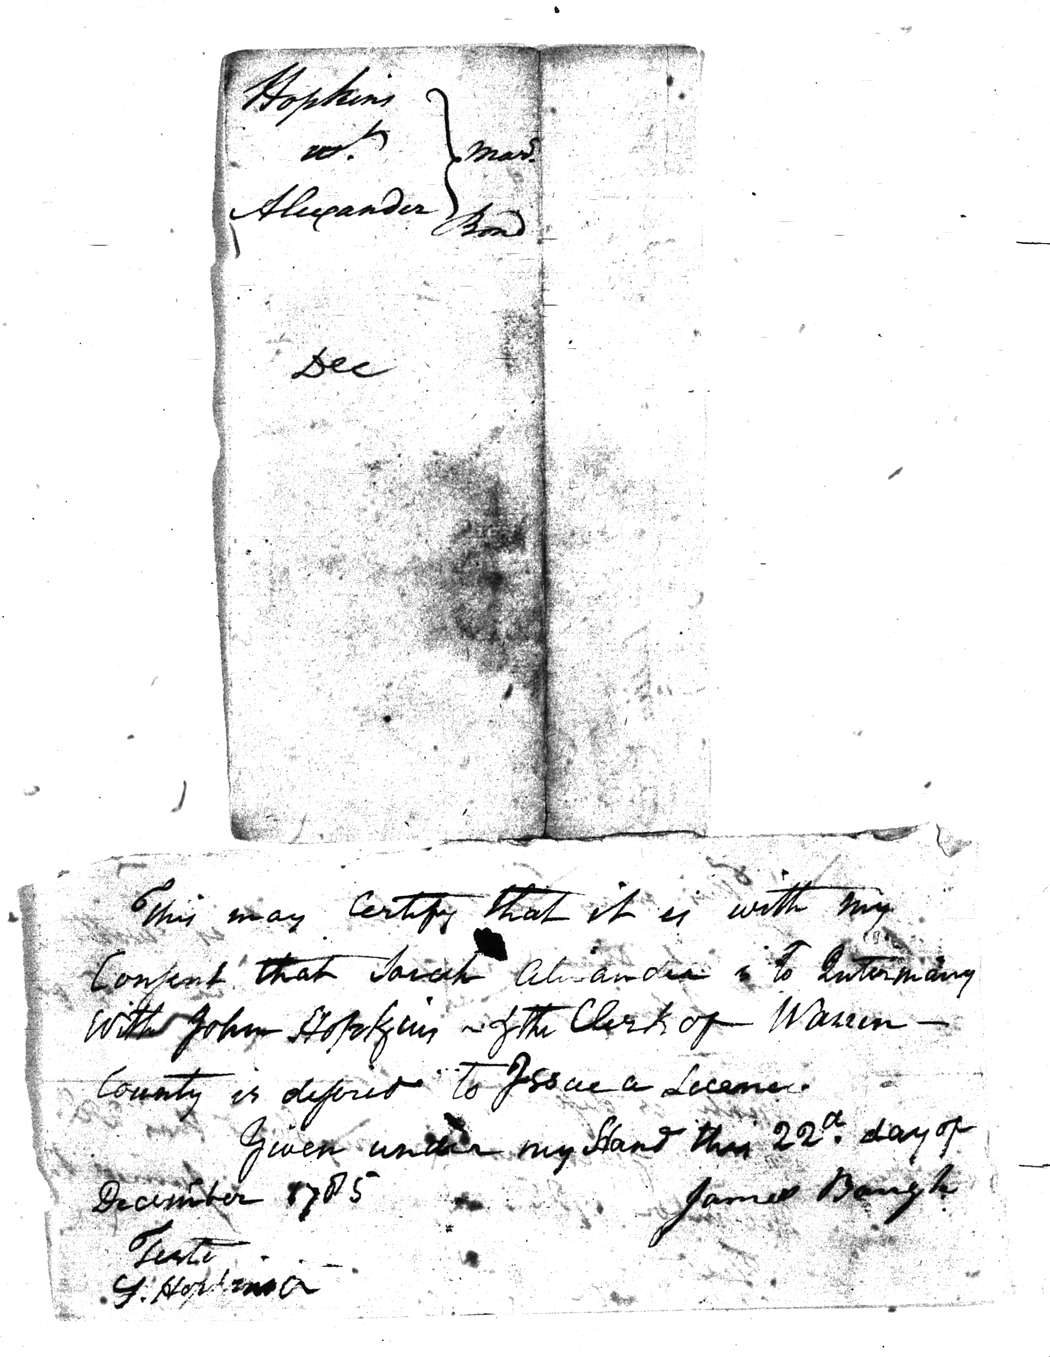 Hopkins
wt.
Alexander
Mar.
Bond
Dec
This may Certify that it is with my
Consent that Sarah Alexander is to Intermarry
with John Hopkins & the Clerk of Warren
County is desired to Issue a Licence.
Given under my Hand this 22d. day of
December 1785
James Baugh
Teste